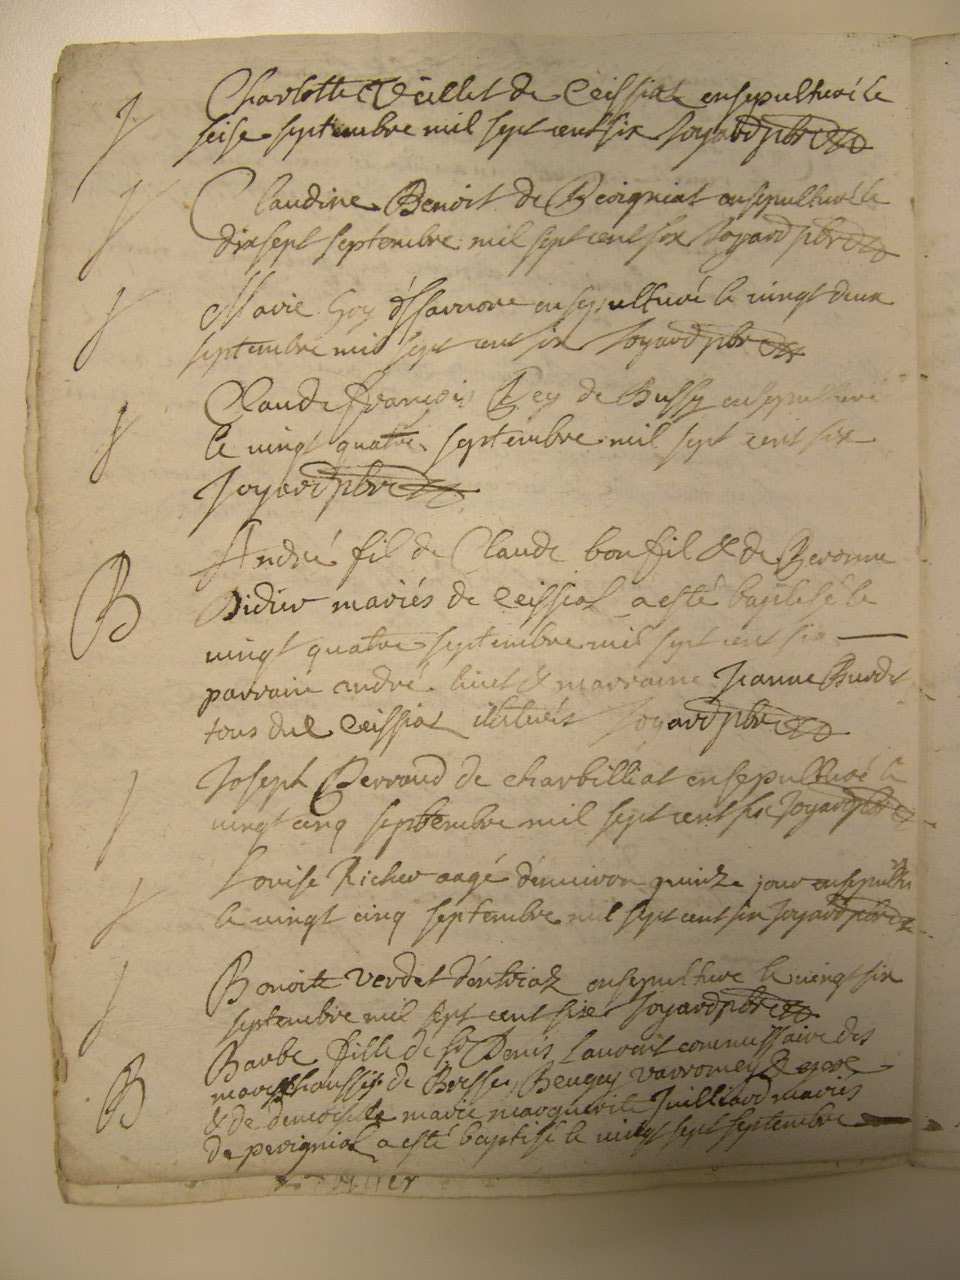 Charlotte Veillet de Ceissiat ensepulturé le
seise septembre mil sept cent six Joyard pbre
Claudine Benoit de Peroigniat ensepulturé le
dixsept septembre mil sept cent six Joyard pbre
Marie Goy ensepulturé le vingt deux
septembre mil sept cent six Joyard pbre
Claude francois Rey de Bussy ensepulturé
le vingt quatre septembre mil sept cent six
Joyard pbre
B
André fil de Claude bonfil & de
Didier mariés de Ceissiat a esté baptesé le
vingt quatre septembre mil sept cent six
parrain andré & marraine Jeanne Burdet
tous de Ceissiat Joyard pbre
Joseph Perraud de charbilliat ensepulturé le
vingt cinq septembre mil sept cent six Joyard pbre
Lovise Richer aagé denviron quinze jour
le vingt cinq septembre mil sept cent six Joyard pbre
Benoitte verdet ensepulturé le vingt six
septembre mil sept cent six Joyard pbre
B
Barbe fille de sr Denis Lauvert commissaire des
mareschaussés de Bresse, Beugey varromey & gex
& de demoiselle marie marguerite Juilliard mariés
de perigniat a esté baptisé le vingt sept septembre